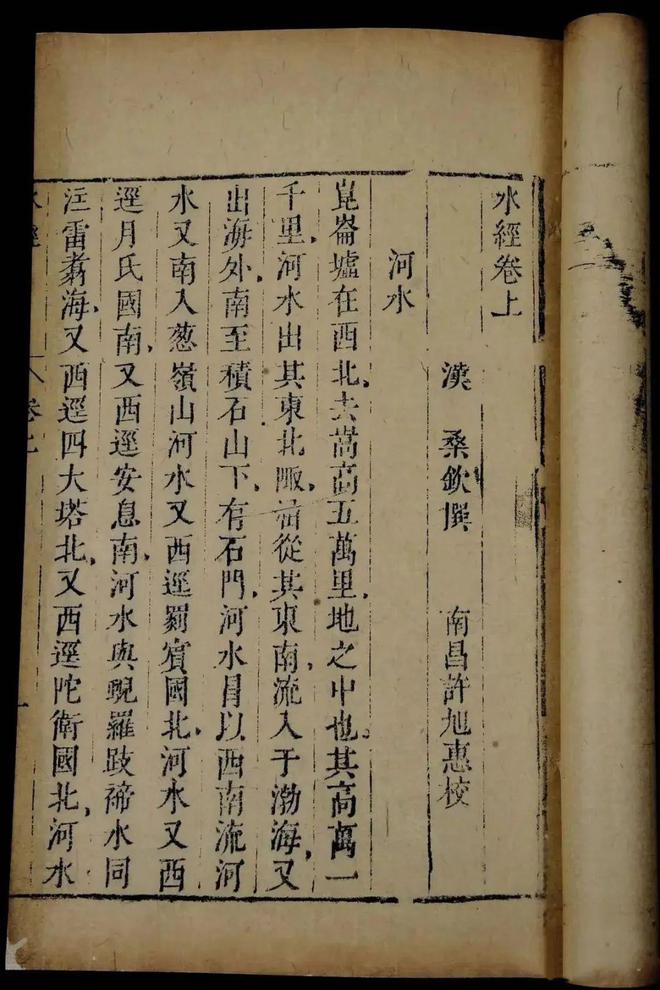 水經卷上
漢 桑欽撰 南昌許旭惠校
河水
崑崙墟在西北、去嵩高五萬里、地之中也。其高萬一
千里、河水出其東北陬、屈從其東南、流入于渤海、又
出海外、南至積石山下、有石門、河水冒以西南流河
水又南入葱嶺山河水又西逕罽賓國北、河水又西
逕月氏國南、又西逕安息南、河水與蜺羅跂禘水同
注雷翥海、又西逕四大塔北、又西逕陀衛國北、河水